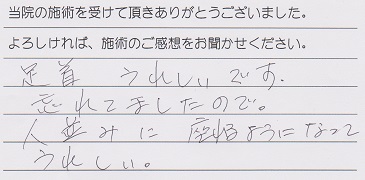 当院の施術を受けて頂きありがとうございました。
よろしければ、施術のご感想をお聞かせください。
足首 うれしいです。
忘れてましたので。
人並みに 座れるようになって
うれしい。